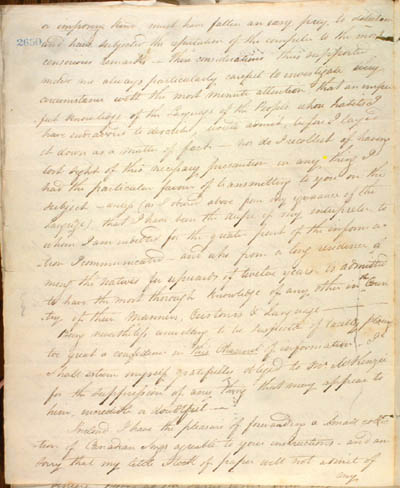 or imposing there must have fallen an easy prey to detection
2650
and have subjected the reputation of the compiler to the most
censorious remarks — These considerations thus supported
makes me always particularly careful to investigate every
circumstance with the most minute attention that an imper-
fect knowledge of the Language of the People whose habits I
have endeavored to describe, would admit, before I lay
it down as a matter of fact — nor do I recollect of having
lost sight of this necessary precaution in any thing I
had the particular favour of transmitting to you on the
subject — unless (as I observe above from my ignorance of the
language) that I have been the dupe of my interpreter to
whom I am indebted for the greater part of the informa-
tion I communicated — and who from a long residence a-
mongst the natives for upwards of twelve years is admitted
to have the most thorough knowledge of any other in the Coun-
try of their Manners, Customs & Language —
Being nevertheless unwilling to be suspected of
too great a confidence in this Channel of information I
shall esteem myself gratefully obliged to Mr. McKenzie
for the suppression of any thing that may appear to
him incredible or doubtful —
Inclosed I have the pleasure of forwarding a small collec-
tion of Canadian Songs agreeable to your instructions — and am
sorry that my little Stock of paper will not admit of
any